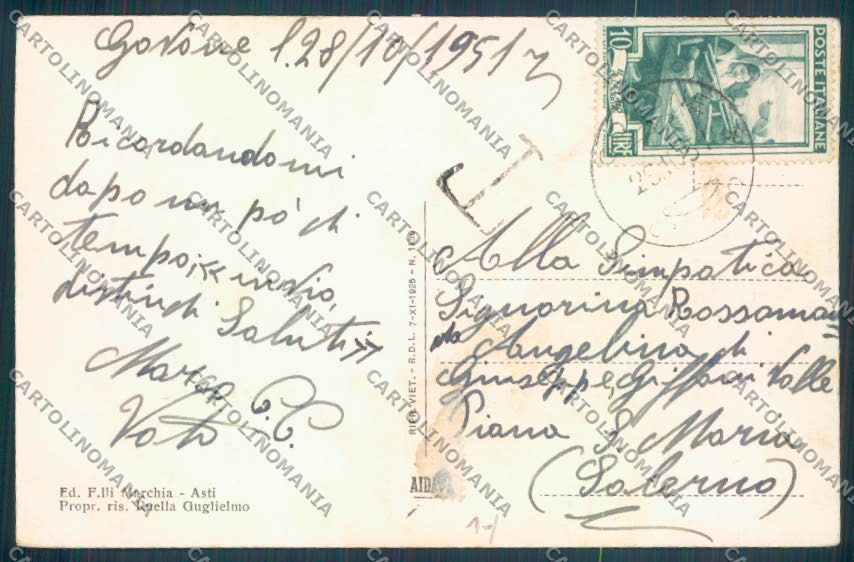 Govone l. 28/10/1951
Ricordandomi
dopo un pò di
tempo, invio,
distindi Saluti
Ed. F.lli Marchia - Asti
Propr. ris. Ruella Guglielmo
RIPR. VIET. - R.D.L. 7-XI-1925 - N.
10 LIRE
POSTE ITALIANE
T
Alla Simpatica
Signorina Rossoman=
da Angelina di
Giuseppe Giffoni Valle
Piana S. Maria
(Salerno)
CARTOLINOMANIA